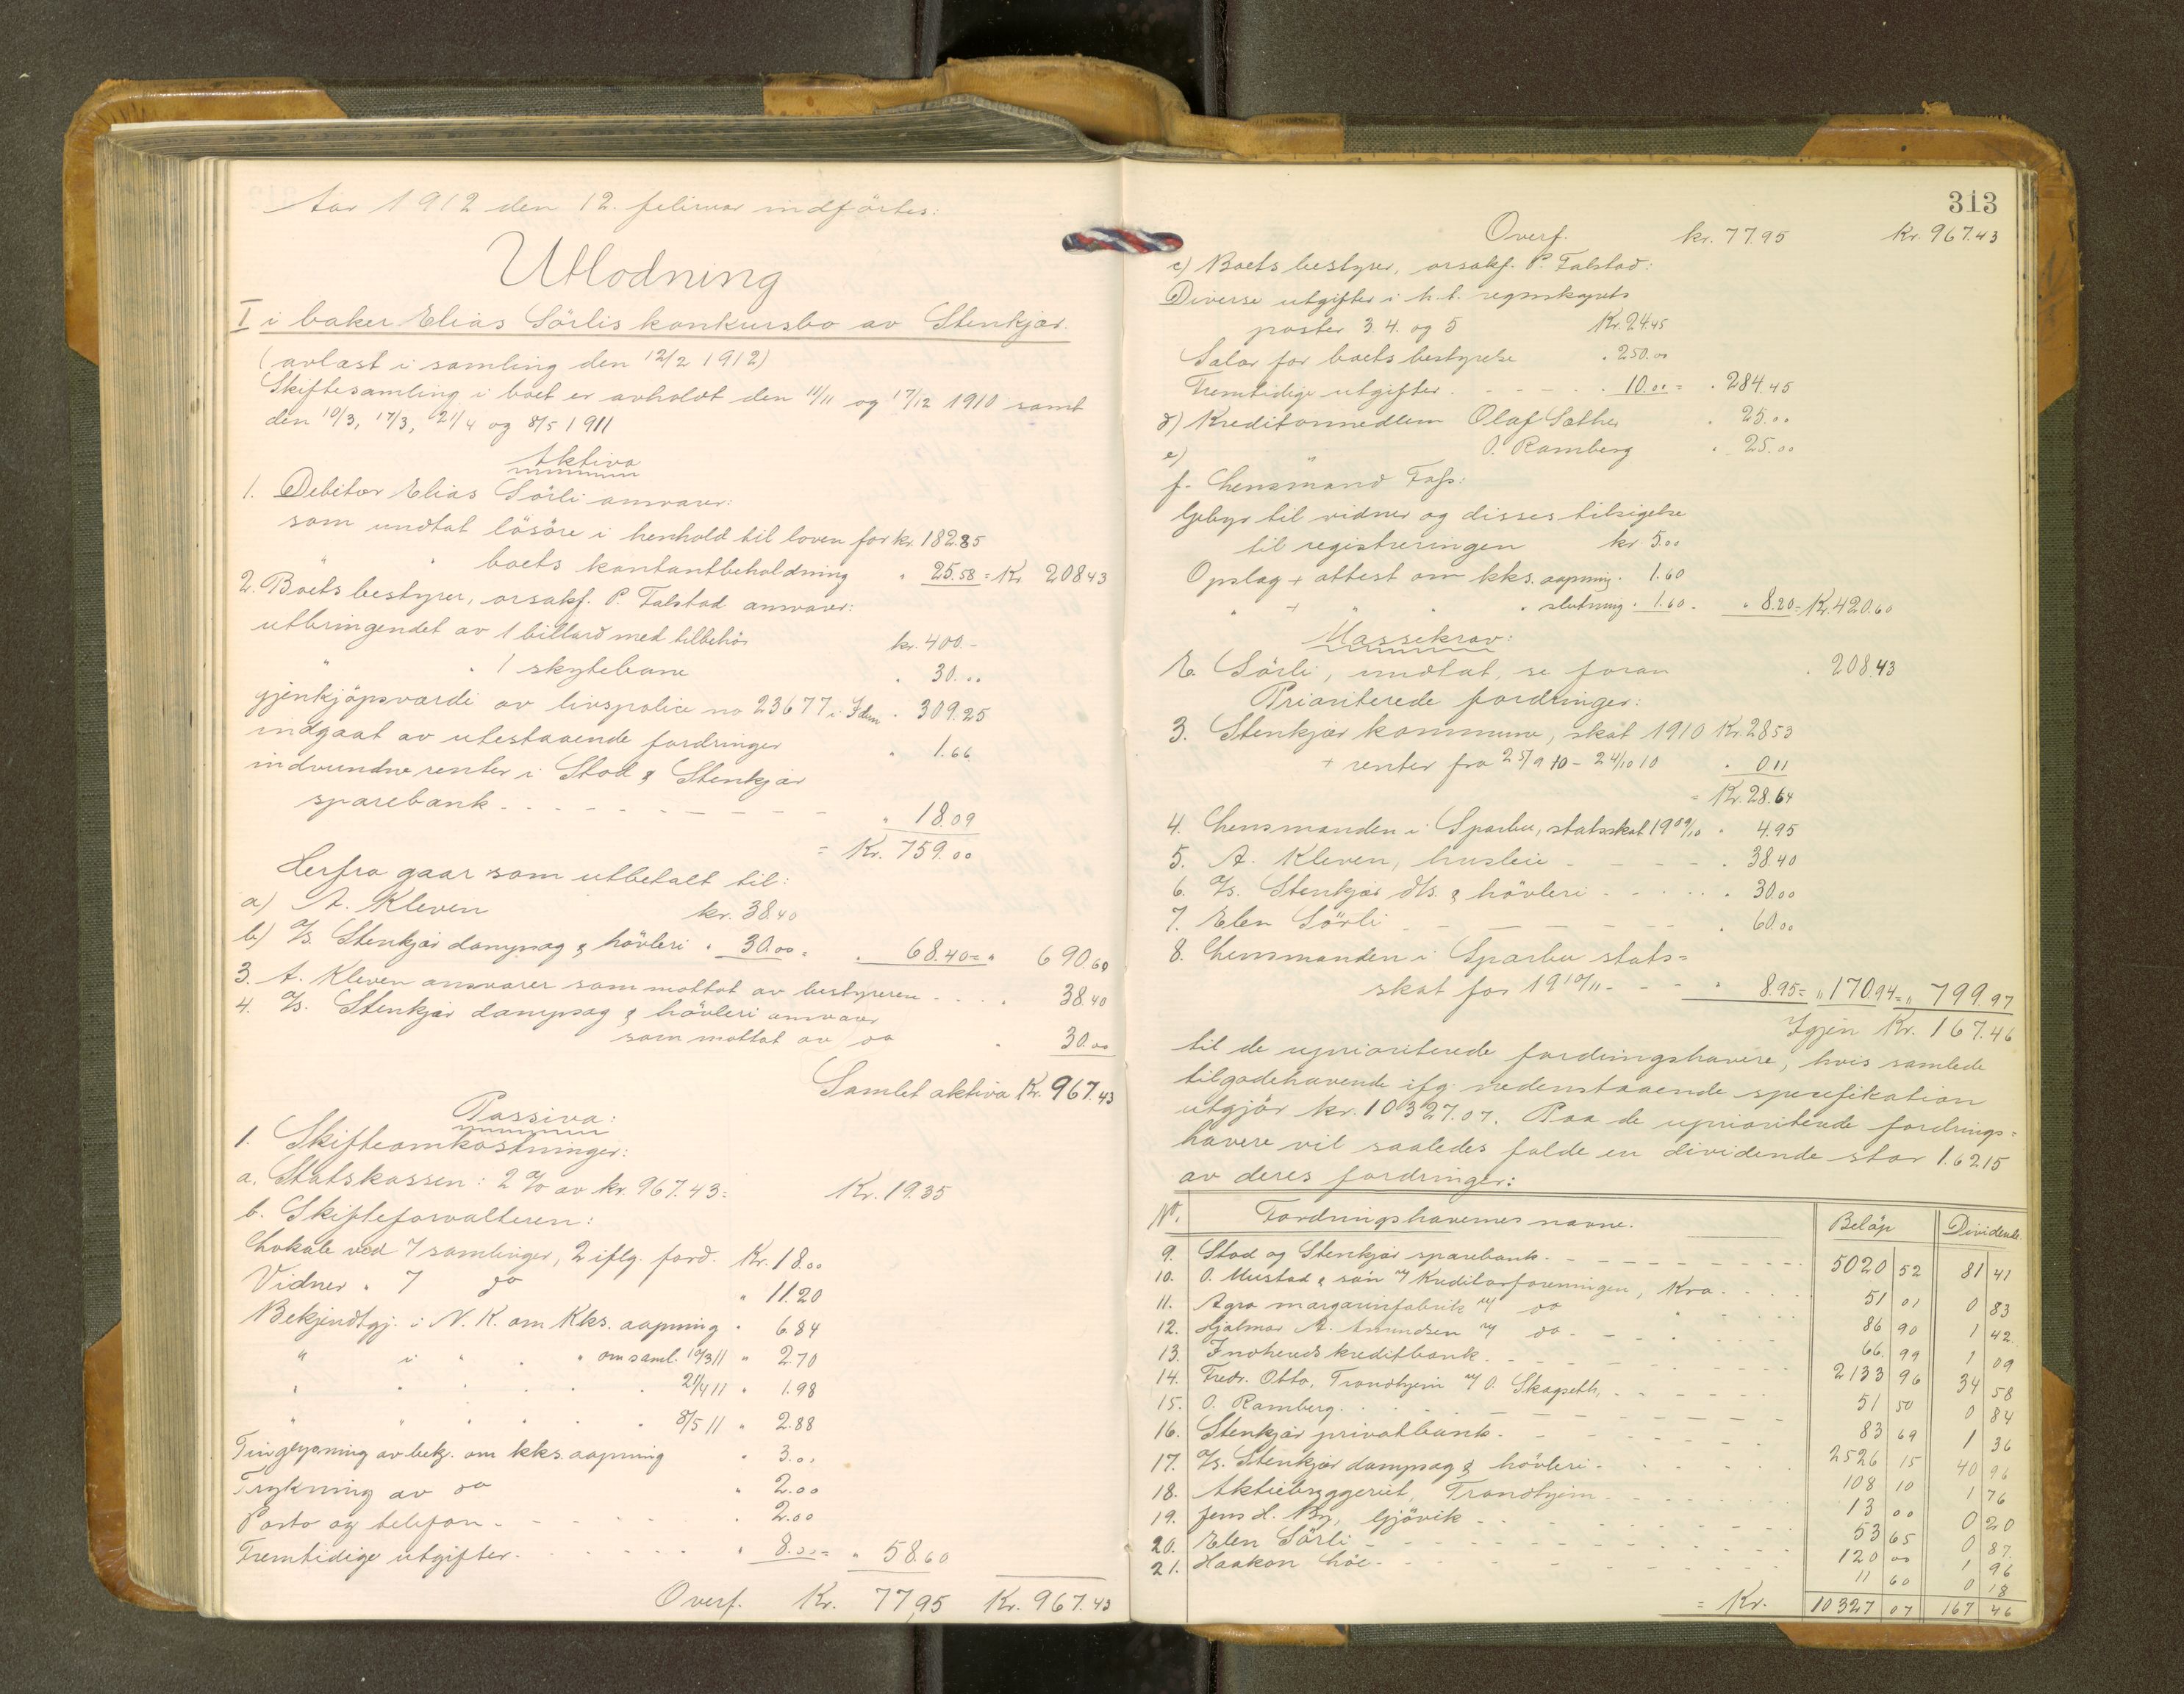 Aar 1912 den 12. februar indförtes:
Utlodning
I i baker Elias Sörlis konkursbo av Stenkjær.
(avlæst i samling den 12/2 1912)
Skiftesamling i boet er avholdt den 11/11 og 17/12 1910 samt
den 10/3, 17/3, 21/4 og 8/5 1911
Aktiva
1. Debitor Elias Sörli ansvarer:
som undtat lösöre i henhold til loven for kr. 182.85
" " boets kontantbeholdning " 25.58 = Kr. 208 43
2. Boets bestyrer, orsakf. P. Falstad ansvarer:
utbringendet av 1 billard med tilbehör kr. 400.-
" " 1 skytebane " 30.00
gjenkjöpsværdi av livspolice no 23677 i Idun " 309.25
indgaat av utestaaende fordringer " 1.66
indvundne renter i Stod & Stenkjær
sparebank - - - - - - - " 18.09
= Kr. 759.00
Herfra gaar som utbetalt til:
a) A. Kleven kr. 38.40
b) A/s. Stenkjær dampsag & hövleri " 30.00 = " 68.40 = " 690.60
3. A. Kleven ansvarer som mottat av bestyreren - . . . 38.40
4. A/s. Stenkjær dampsag & hövleri ansvarer
som mottat av do " 30.00
Samlet aktiva Kr. 967.43
Passiva:
1. Skifteomkostninger:
a. Statskassen: 2 % av kr. 967.43: Kr. 19.35
b. Skifteforvalteren:
Lokale ved 7 samlinger, 2 iflg. ford. Kr. 18.00
Vidner " 7 do " 11.20
Bekjendtgj. i N. K. om Kks. aapning " 6.84
" i " " " om saml. 10/3 11 " 2.70
" " " " " 21/4 11 " 1.98
" " " " " 8/5 11 " 2.88
Tinglysning av bekj. om kks. aapning " 3.00
Trykning av do " 2.00
Porto og telefon - - - - - " 2.00
Fremtidige utgifter. - - - - - " 8.00 = " 58.60
Overf. Kr. 77,95 Kr. 967.43
313
Overf. kr. 77.95 Kr. 967.43
c) Boets bestyrer, orsakf. P. Falstad:
Diverse utgifter i h. t. regnskapets
poster 3. 4. og 5 Kr. 24.45
Salær for boets bestyrelse " 250.00
Fremtidige utgifter . - - - . . 10.00 = " 284.45
d) Kreditormedlem Olaf Sæther " 25.00
e) " O. Ramberg " 25.00
f. Lensmand Fass:
Gebyr til vidner og disses tilsigelse
til registreringen kr. 5.00
Opslag + attest om kks. aapning " 1.60
" + " " " slutning " 1.60 - " 8.20 = Kr. 420.60
Massekrav:
E. Sörli, undtat, se foran " 208.43
Prioriterede fordringer:
3. Stenkjær kommune, skat 1910 Kr. 28 53
+ renter fra 25/9 10 - 24/10 10 " 0 11
= Kr. 28.64
4. Lensmanden i Sparbu, statsskat 1909/10 " 4.95
5. A. Kleven, husleie - - - - - " 38 40
6. A/s. Stenkjær ds. & hövleri - - . . . " 30.00
7. Elen Sörli - - - - - - " 60.00
8. Lensmanden i Sparbu stats=
skat for 1910/11 - - - " 8.95 = " 170.94 = " 799 97
Igjen Kr. 167.46
til de uprioriterede fordringshavere, hvis samlede
tilgodehavende ifg. nedenstaaende spesefikation
utgjör kr. 10327.07. Paa de uprioriterede fordrings=
havere vil saaledes falde en dividende stor 1.6215
av deres fordringer:
No. Fordringshavernes navne. Belöp Dividende
9. Stod og Stenkjær sparebank. - - - - - - 5020 52 81 41
10. O. Mustad & sön v/ Kreditorforeningen, Kra. . . . 51 01 0 83
11. Agra margarinfabrik v/ do " . . . 86 90 1 42
12. Hjalmar A. Amundsen v/ do - - - - 66. 99 1 09
13. Indherreds kreditbank. - - - - - - 2133 96 34 58
14. Fredr. Otto, Trondhjem v/ O. Skogseth, - - - - - 51 50 0 84
15. O. Ramberg. - - - - - - - 83 69 1 36
16. Stenkjær privatbank - - - - - - 2526 15 40 96
17. A/s. Stenkjær dampsag & hövleri - . . . . 108 10 1 76
18. Aktiebryggeriet, Trondhjem - - - - - 13 00 0 20
19. Jens H. By, Gjövik - - - - - - 53 65 0 87.
20. Elen Sörli - - - - - - - - 120 00 1 96
21. Haakon Löe - - - - - - - 11 60 0 18
= Kr. 10327 07 167 46